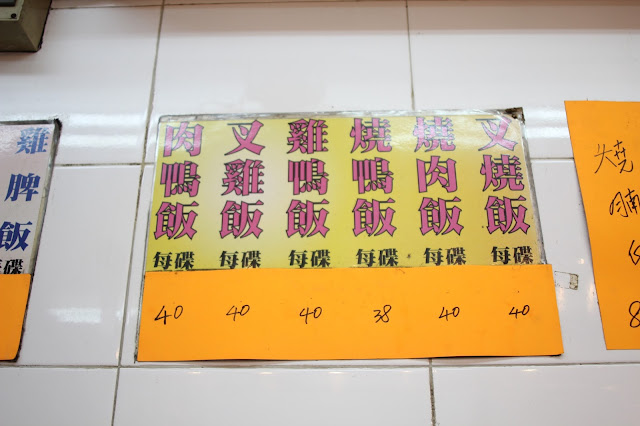 燒腩
叉燒飯 每碟 40
燒肉飯 每碟 40
燒鴨飯 每碟 38
雞鴨飯 每碟 40
叉雞飯 每碟 40
肉鴨飯 每碟 40
雞脾飯